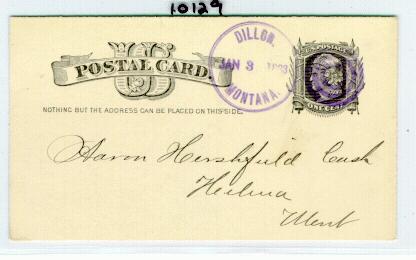 10129
U.S. POSTAGE
POSTAL CARD.
DILLON,
JAN 3 1883
MONTANA.
ONE CENT
NOTHING BUT THE ADDRESS CAN BE PLACED ON THIS SIDE.
Aaron Hershfield Cash
Helena
Mont